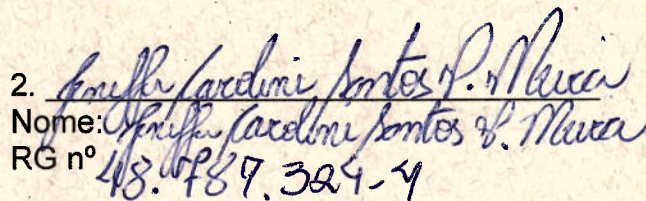 2. Jeniffer Caroline Santos P. Meira
Nome: Jeniffer Caroline Santos P. Meira
RG nº 48.787.324-4